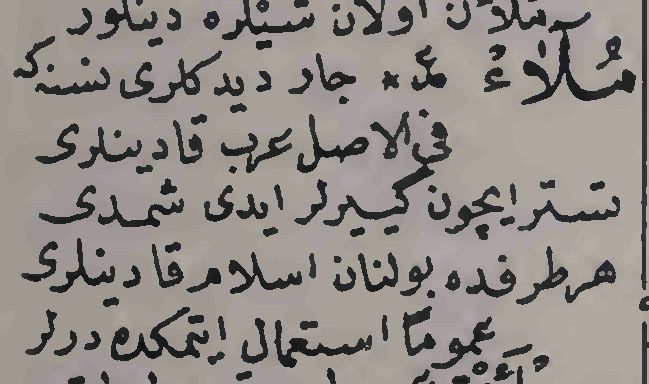 اولان شیلره دینلور
مُلَاءَةٌ مدّ * جار دیدکلری نسنه که
فی الاصل عرب قادینلری
تستر ایچون کییرلر ایدی شمدی
هر طرفده بولنان اسلام قادینلری
عموماً استعمال ایتمکده درلر